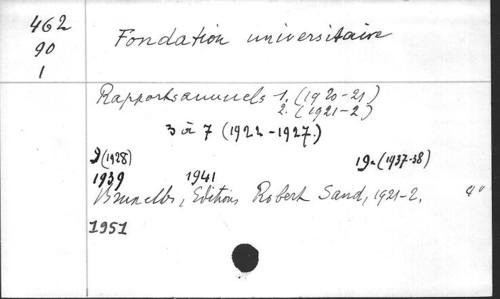 462
90
1
Fondation universitaire
Rapports annuels 1. (1920-21)
2. (1921-2)
3 à 7 (1922-1927.)
9 (1928) 19. (1937-38)
1939 1941
Bruxelles, Editions Robert Sand, 1921-2. 4°
1951